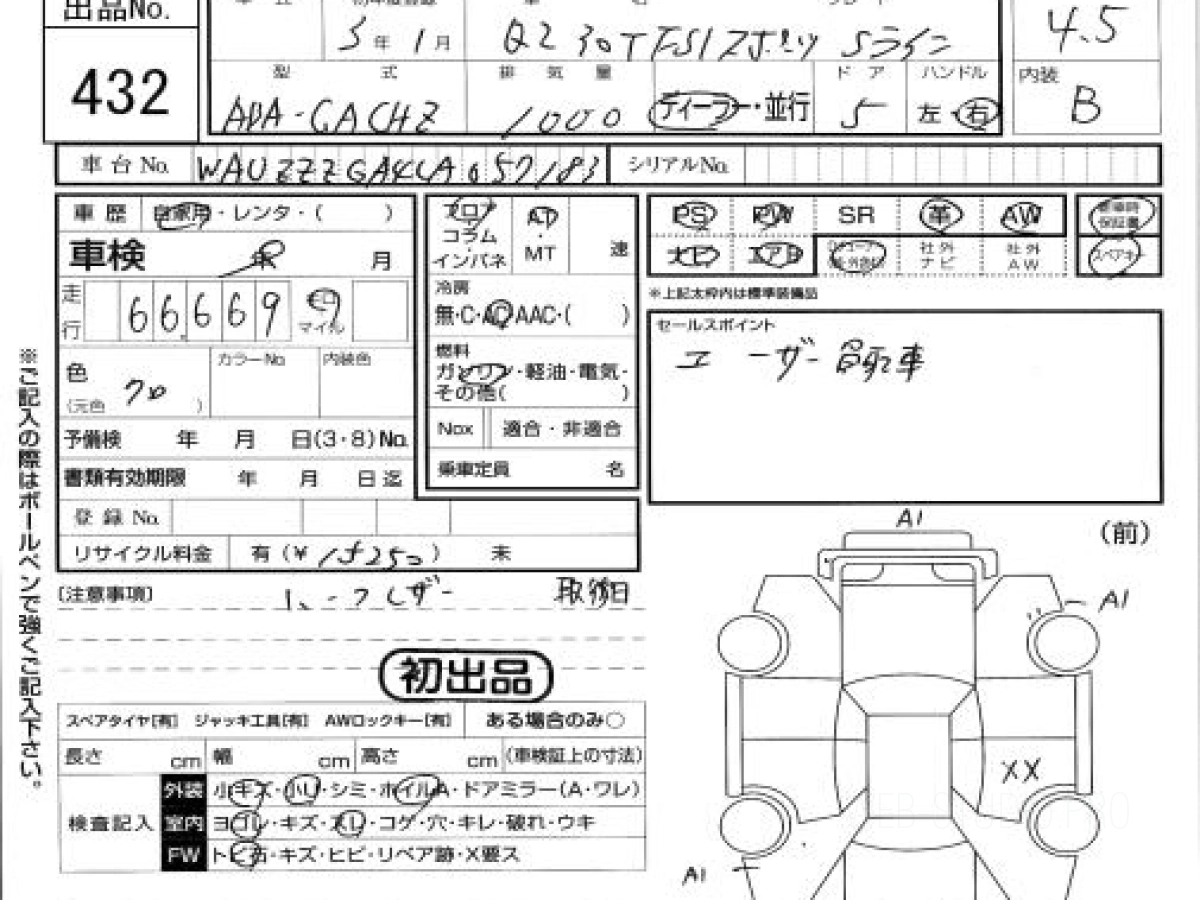 出品No.
432
4.5
5年 1月
Q2 30TFSI スポーツ Sライン
型 式
排 気 量
ド ア
ハンドル
内装
ADA-GACHZ
1000
ディーラー・並行
5
左・右
B
車台No.
WAUZZZGA4LA057183
シリアルNo.
車歴
自家用・レンタ・( )
フロア・コラム・インパネ
AT・MT
速
PS
PW
SR
革
AW
保証書
車検
年 月
ナビ
エアB
社外ナビ
社外AW
スペアキー
※上記太枠内は標準装備品
走行
66,669
キロ
マイル
冷房
無・C・AC・AAC・( )
セールスポイント
ユーザー自転車
色
クロ
(元色 )
カラーNo.
内装色
燃料
ガソリン・軽油・電気・
その他( )
予備検 年 月 日(3・8)No.
Nox
適合・非適合
書類有効期限 年 月 日迄
乗車定員 名
登録No.
リサイクル料金
有(¥ )
未
A1
(前)
[注意事項]
A1
初出品
スペアタイヤ[有] ジャッキ工具[有] AWロックキー[有]
ある場合のみ○
長さ cm
幅 cm
高さ cm
(車検証上の寸法)
XX
検査記入
外装 小キズ・小凹・シミ・ホイルA・ドアミラー(A・ワレ)
室内 ヨゴレ・キズ・スレ・コゲ・穴・キレ・破れ・ウキ
FW トビ石・キズ・ヒビ・リペア跡・X要ス
A1
※ご記入の際はボールペンで強くご記入下さい。